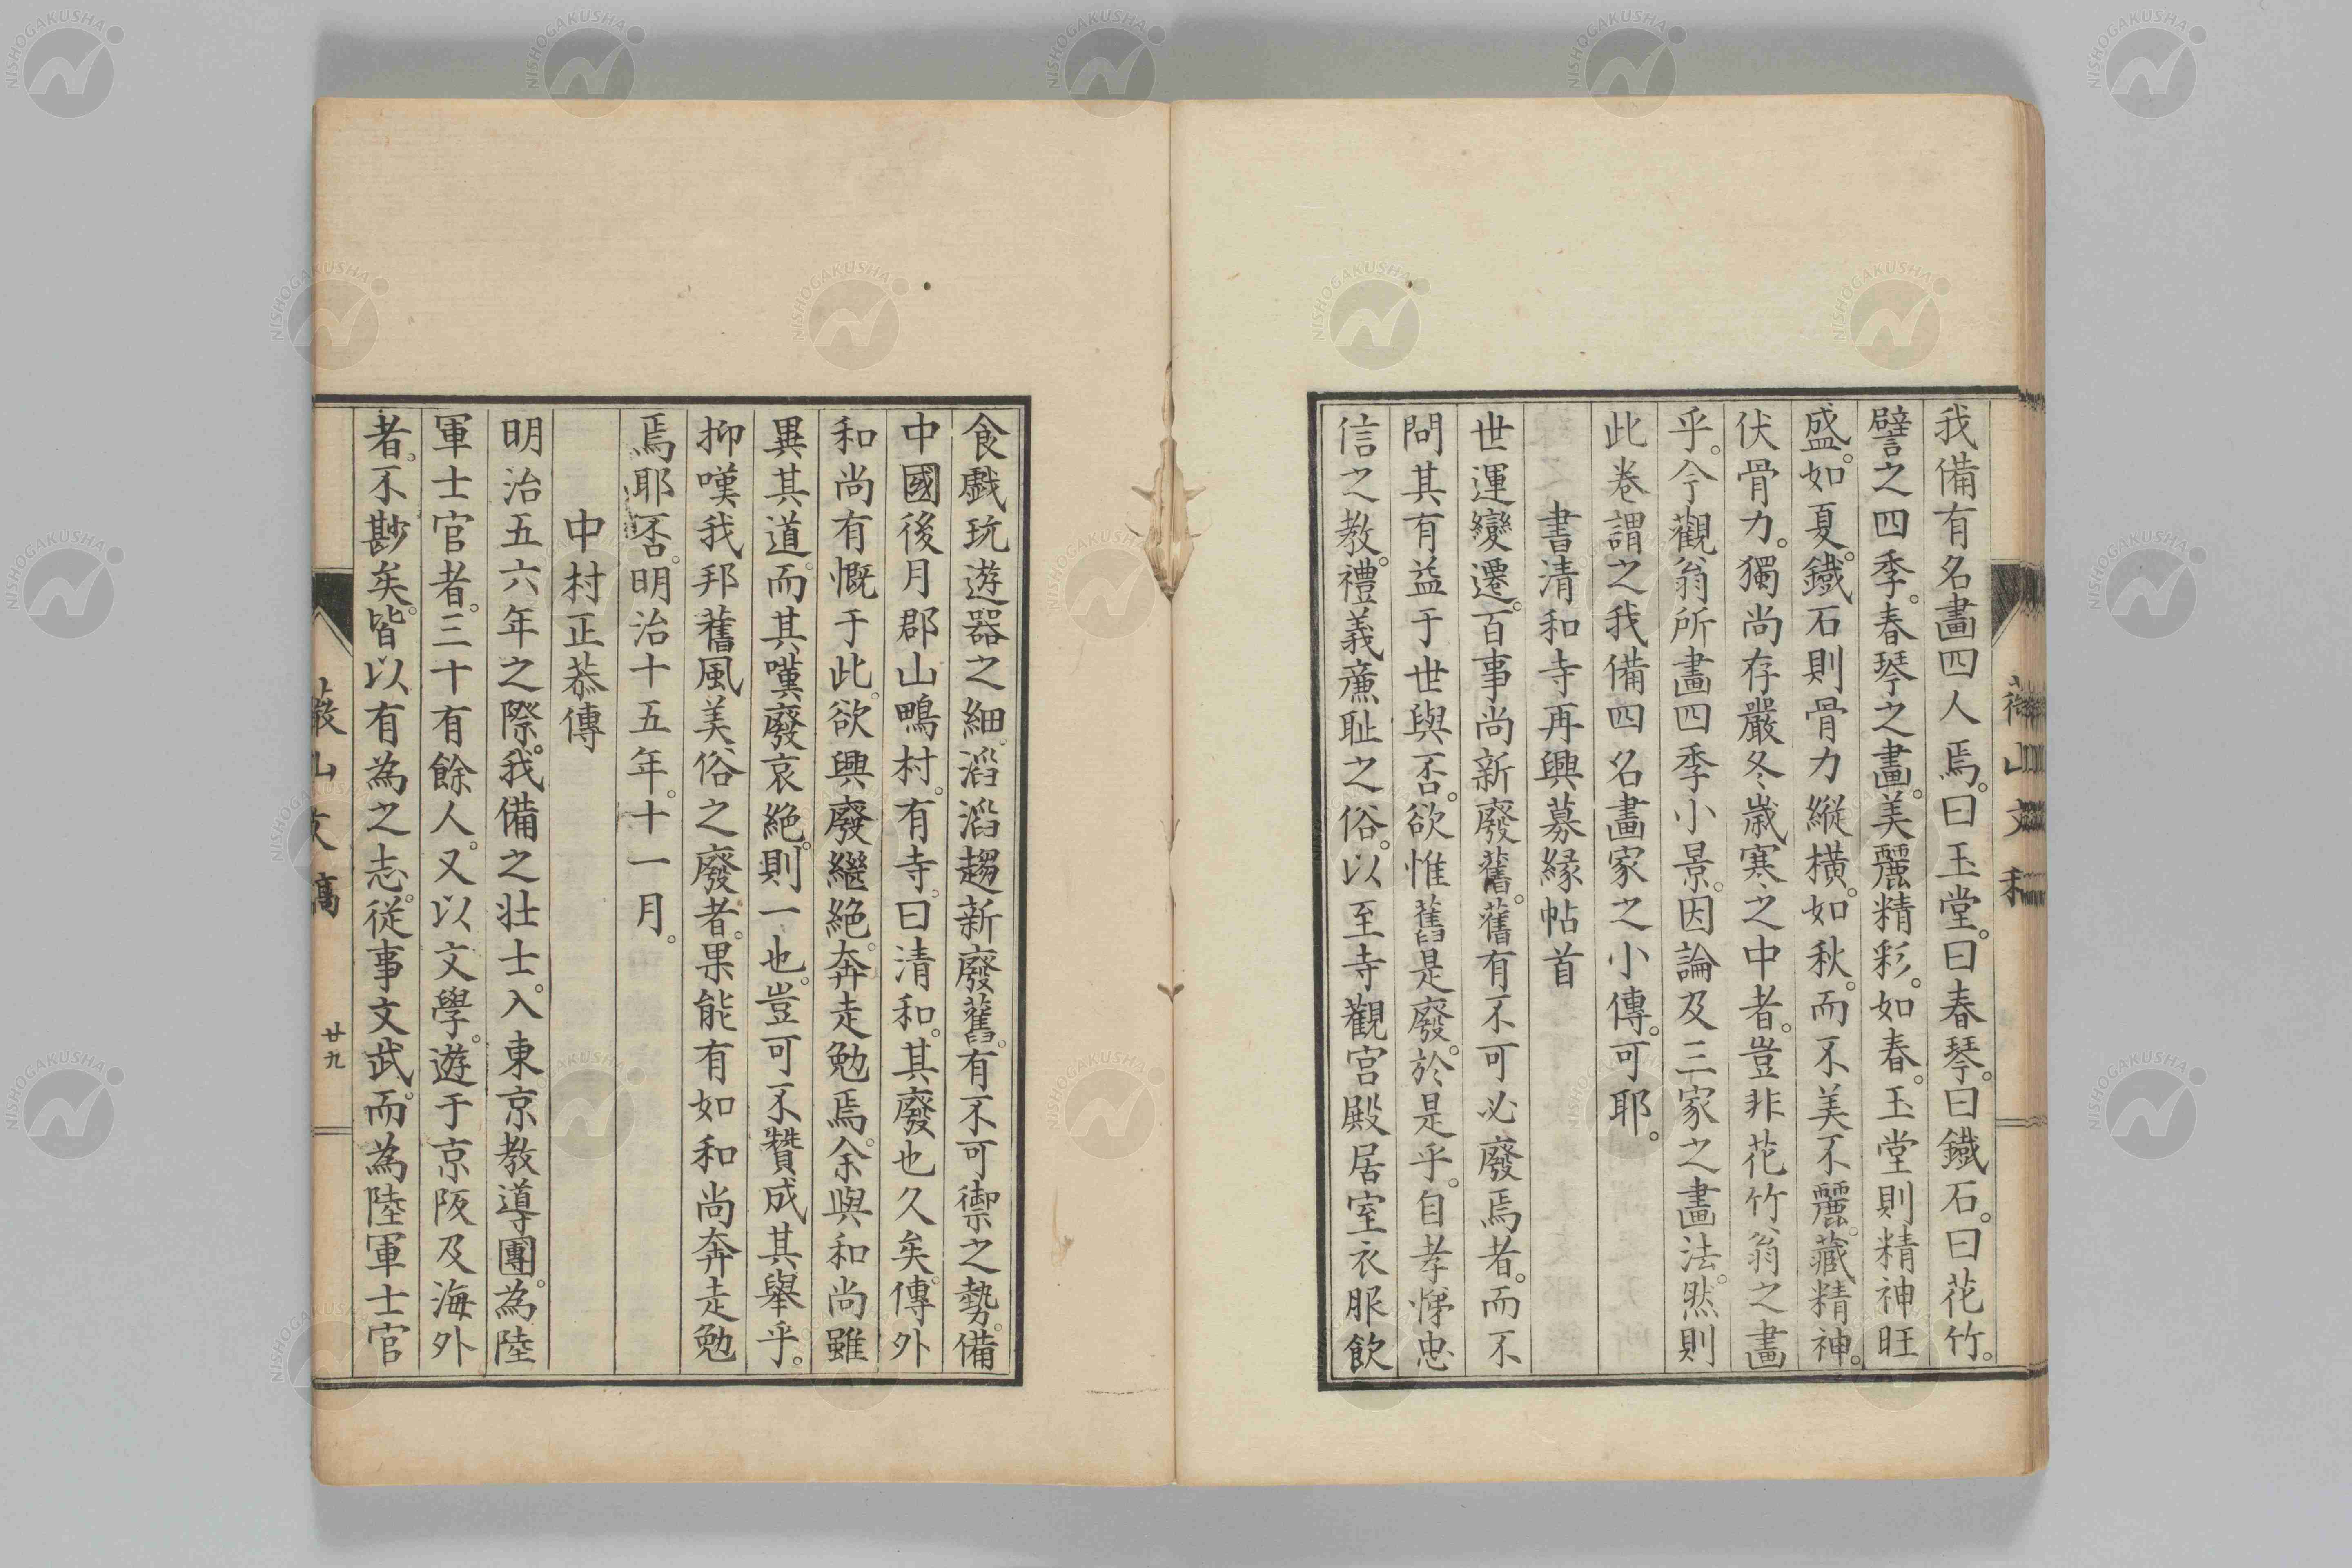 我備有名畫四人焉。曰玉堂。曰春琴。曰鐵石。曰花竹。
譬之四季。春琴之畫。美麗精彩。如春。玉堂則精神旺
盛。如夏。鐵石則骨力縱橫。如秋。而不美不麗。藏精神。
伏骨力。獨尚存嚴冬歲寒之中者。豈非花竹翁之畫
乎。今觀翁所畫四季小景。因論及三家之畫法。然則
此卷謂之我備四名畫家之小傳。可耶。
書清和寺再興募縁帖首
世運變遷。百事尚新廢舊。舊有不可必廢焉者。而不
問其有益于世與否。欲惟舊是廢。於是乎。自孝悌忠
信之教。禮義廉耻之俗。以至寺觀宮殿居室衣服飲
食戲玩遊器之細。滔滔趨新廢舊。有不可禦之勢。備
中國後月郡山鴫村。有寺。曰清和。其廢也久矣。傳外
和尚有慨于此。欲興廢繼絶。奔走勉焉。余與和尚雖
異其道。而其嘆廢哀絶。則一也。豈可不贊成其舉乎。
抑嘆我邦舊風美俗之廢者。果能有如和尚奔走勉
焉耶否。明治十五年。十一月。
中村正恭傳
明治五六年之際。我備之壯士。入東京教導團。為陸
軍士官者。三十有餘人。又以文學。遊于京阪及海外
者。不尠矣。皆以有為之志。從事文武。而為陸軍士官
山文稿
廿九
NISHOGAKUSHA